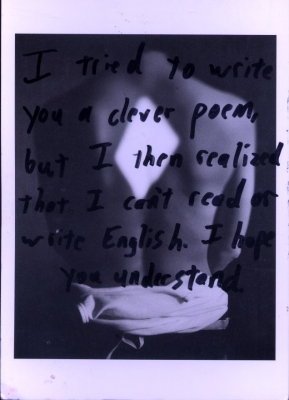 I tried to write
you a clever poem,
but I then realized
that I can't read or
write English. I hope
you understand.